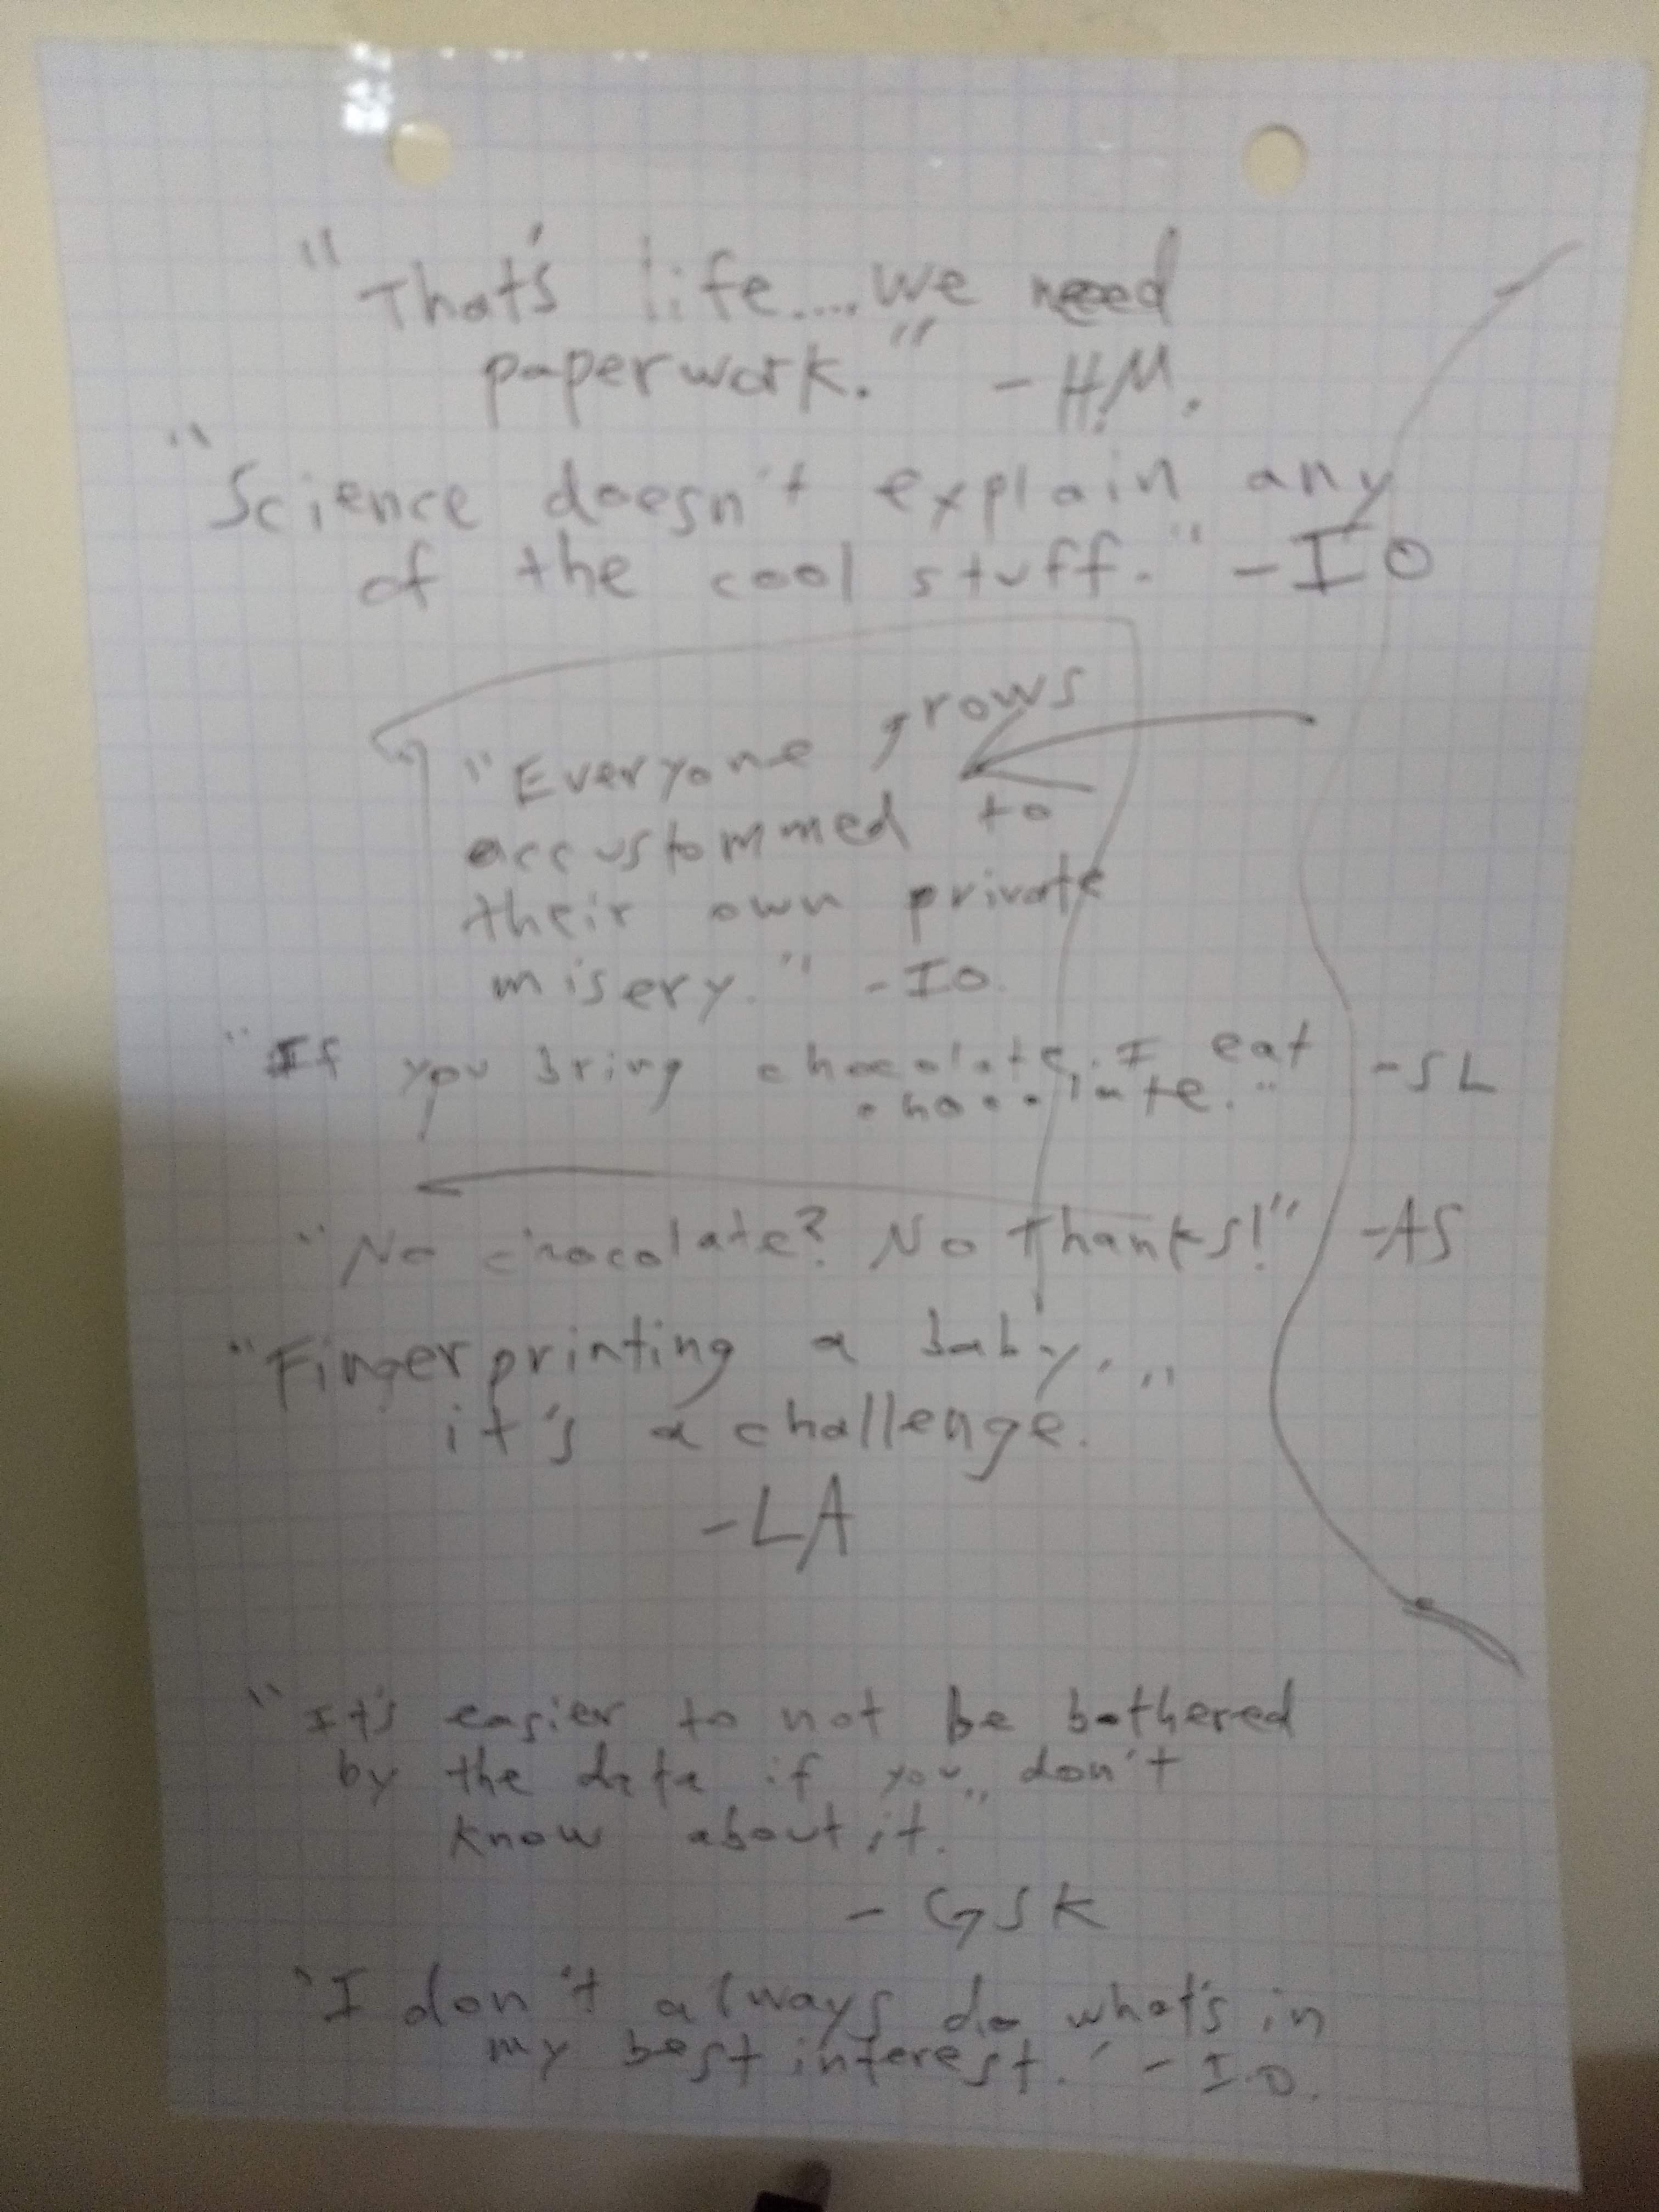 "That's life.... we need
paperwork." - H.M.
"Science doesn't explain any
of the cool stuff." - IO
"Everyone grows
accustommed to
their own private
misery." - IO.
"If you bring chocolate, I eat
chocolate." - SL
"No chocolate? No Thanks!" - AS
"Fingerprinting a baby...
it's a challenge."
- LA
"It's easier to not be bothered
by the date if you don't
know about it."
- GSK
"I don't always do what's in
my best interest." - I.O.